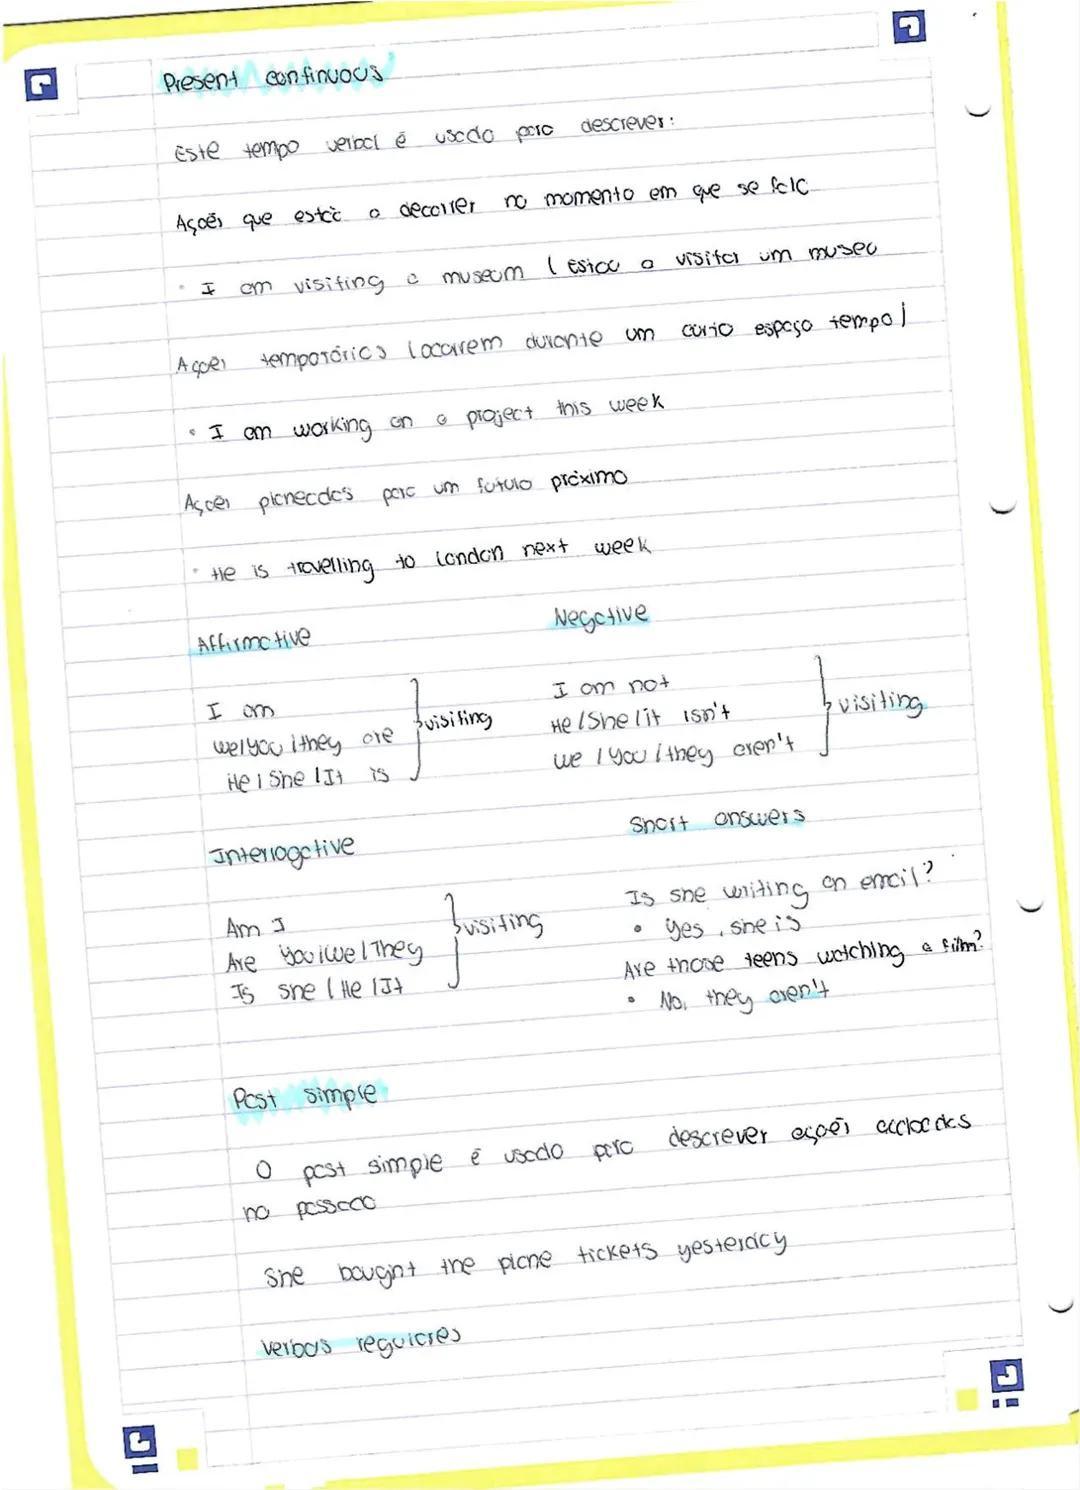 Present continuous
Este tempo verbal é usado para descrever:
Ações que está a decorrer no momento em que se fala
• I am visiting a museum (estou a visitar um museu
Ações temporárias (ocorrem durante um curto espaço tempo)
• I am working on a project this week
Ações planeadas para um futuro próximo
• He is travelling to london next week
Affirmative
Negative
I am
we/you/they are
He/She/It is
} visiting
I am not
He/She/it isn't
we/you/they aren't
} visiting
Interrogative
Short answers
Am I
Are you/we/They
Is she/He/It
} visiting
Is she writing an email?
• yes, she is
Are those teens watching a film?
• No, they aren't
Past simple
O past simple é usado para descrever ações acabadas
no passado
She bought the plane tickets yesterday
Verbos regulares